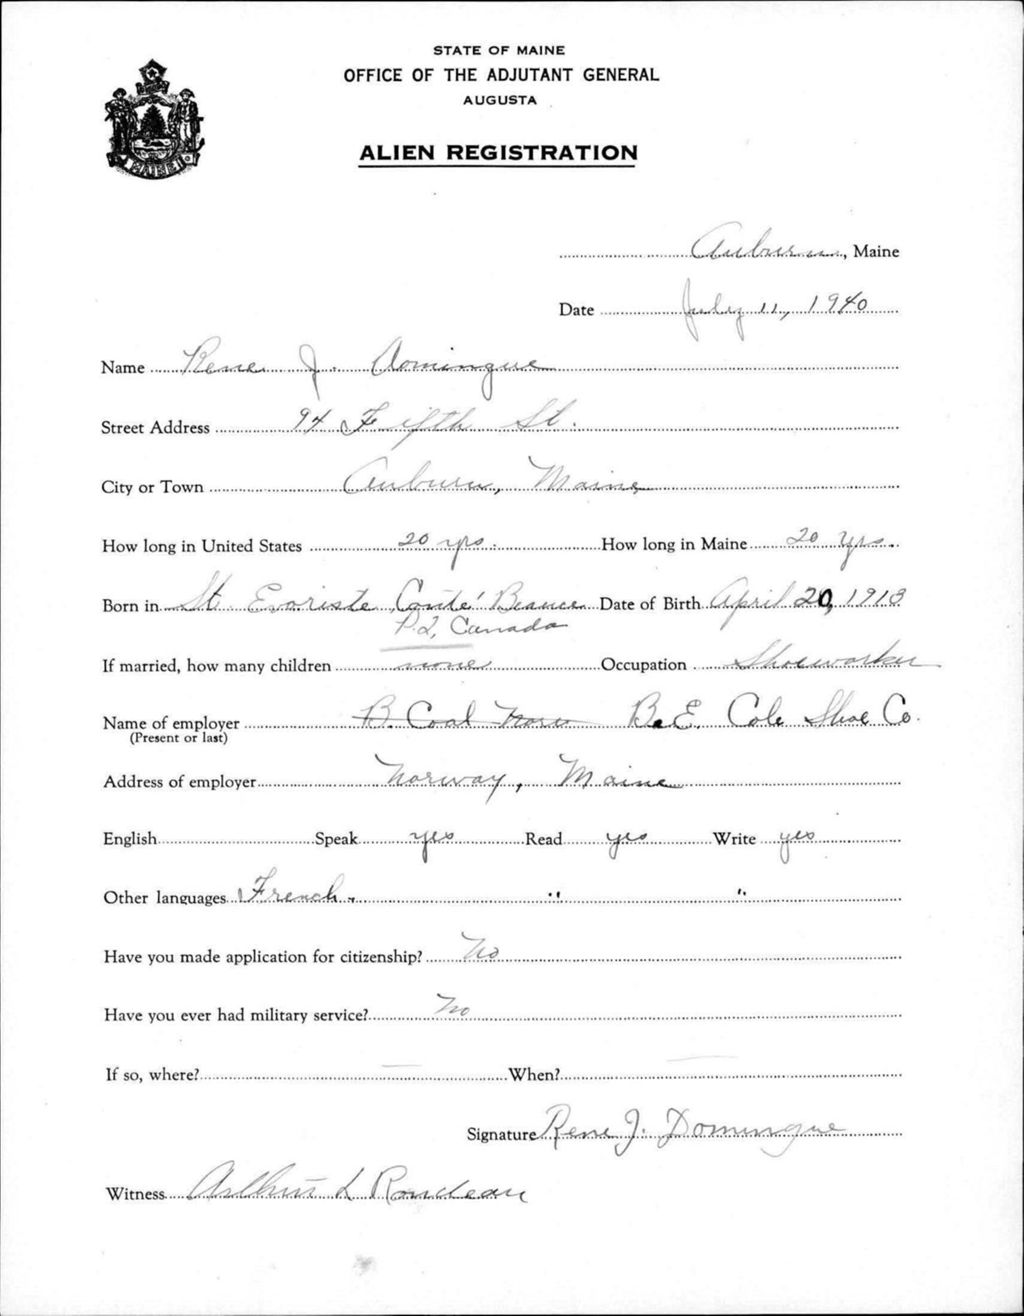 STATE OF MAINE
OFFICE OF THE ADJUTANT GENERAL
AUGUSTA
ALIEN REGISTRATION
MAINE
Auburn, Maine
Date July 11, 1940
Name Rene J. Domingue
Street Address 94 Fifth St.
City or Town Auburn, Maine
How long in United States 20 yrs. How long in Maine 20 yrs.
Born in St. Evariste, Conté Beauce Date of Birth April 20, 1913
P.Q, Canada
If married, how many children none Occupation Shoeworker
Name of employer B. Coal B.E. Cole Shoe Co.
(Present or last)
Address of employer Norway, Maine
English Speak yes Read yes Write yes
Other languages French. " "
Have you made application for citizenship? No
Have you ever had military service? No
If so, where? — When? —
Signature Rene J. Domingue
Witness Arthur L Rondeau